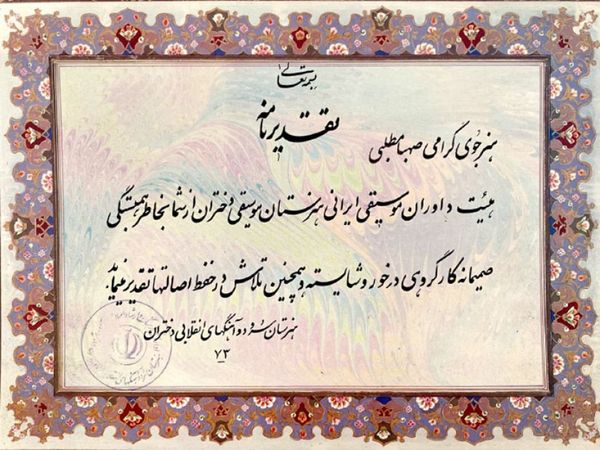 بسمه تعالی
تقدیرنامه
هنرجوی گرامی صهبا مطلبی
هیئت داوران موسیقی ایرانی هنرستان موسیقی دختران از شما بخاطر همبستگی
صمیمانه کار گروهی در خور و شایسته و همچنین تلاش در حفظ اصالتها تقدیر مینماید.
هنرستان سرود و آهنگهای انقلابی دختران
۷۳